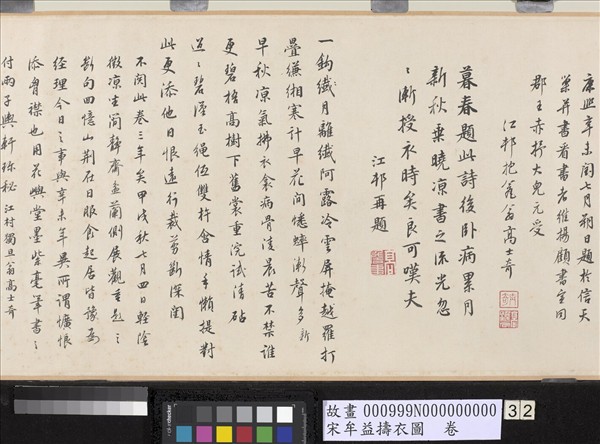 康熙辛未閏七月朔日題於信天
巢并書看書者維揚顧書宣同
郡王赤抒大兒元受
江邨抱瓮翁高士奇
暮春題此詩後卧病累月
新秋乘曉涼書之流光忽
〻漸授衣時矣良可嘆夫
江邨再題
一鉤纖月離纖阿露冷雲屏掩越羅打
疊縑緗寒計早花間蟋蟀漸聲多
新
早秋涼氣拂衣衾病骨淒晨苦不禁誰
更碧梧高樹下舊裳重浣試清砧
迢〻碧溼玉繩低雙杵含情手懶提對
此更添他日恨遠行裁剪斷深閨
不閱此卷三年矣甲戌秋七月四日輕陰
微涼坐簡靜齋盆蘭側展觀重題三
斷句回憶山荊在日服食起居皆豫為
經理今日之事與辛未年異所謂懷恨
添胷襟也用花嶼堂墨紫毫筆書之
付兩子輿軒珍秘 江村獨旦翁高士奇
故畫 000999N000000000
宋牟益擣衣圖 卷
32